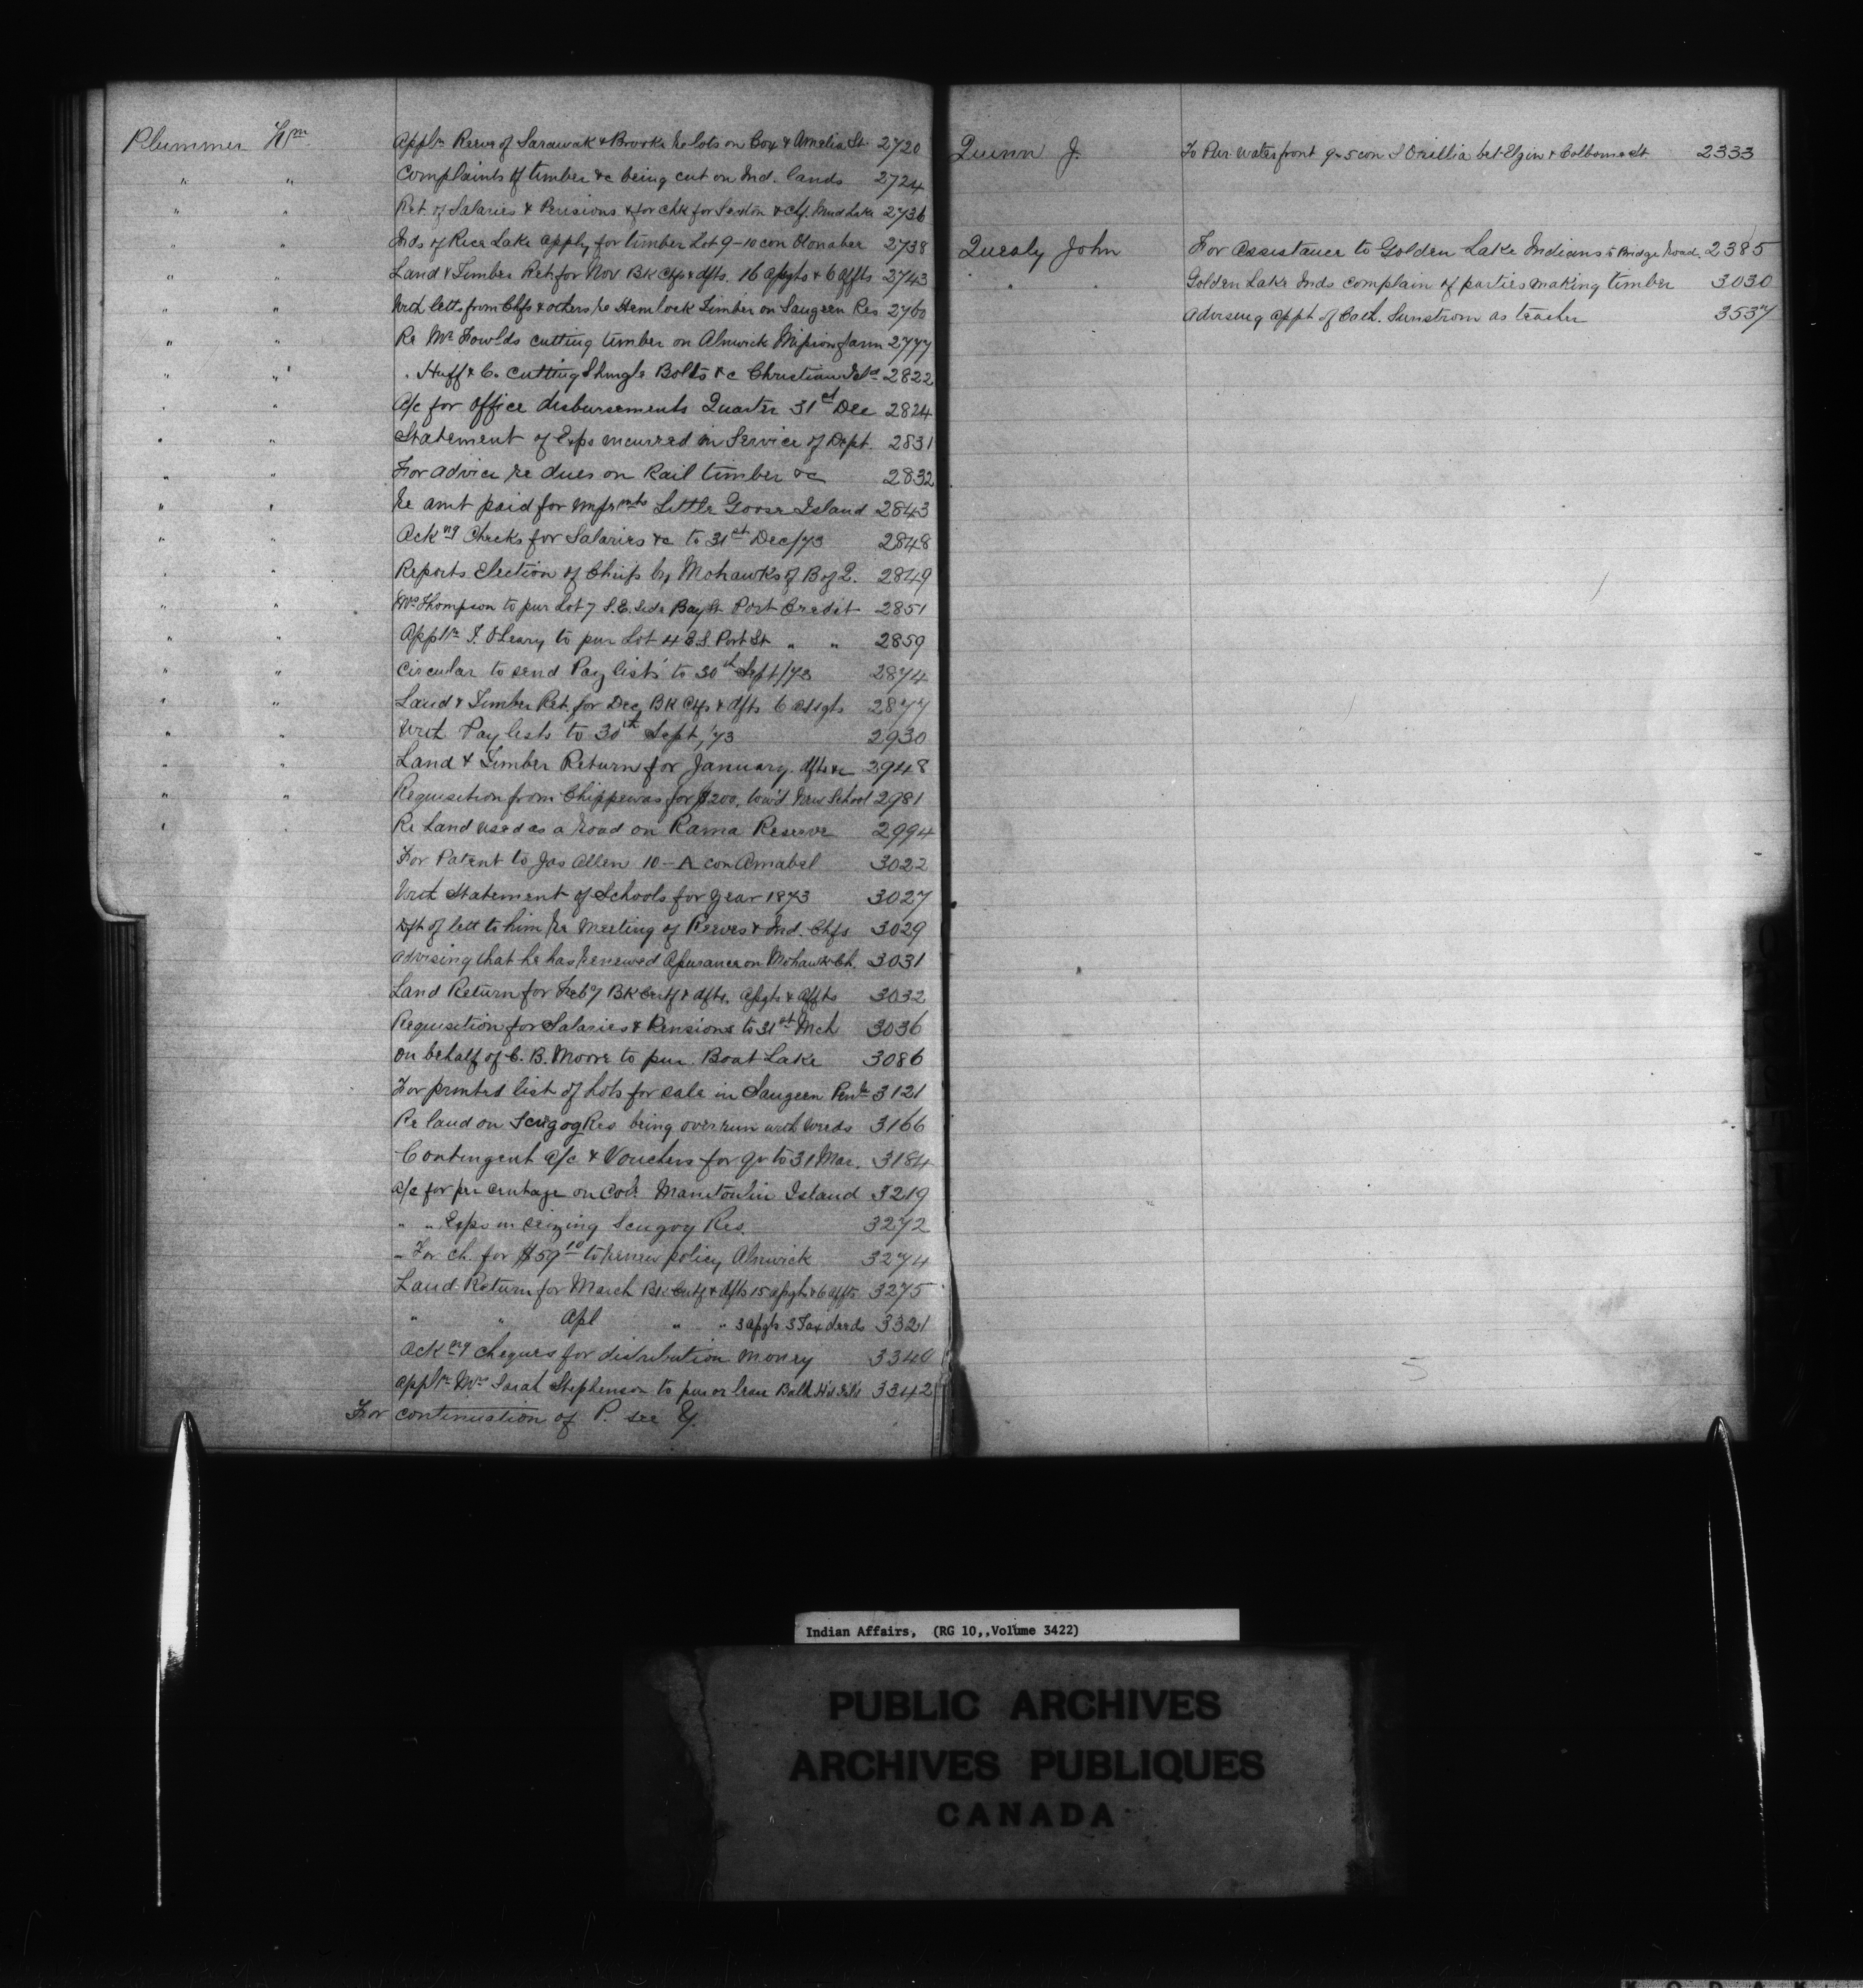 Plummer Wm. Applⁿ Reeve of Sarawak & Brooke re lots on Cox & Amelia St. 2720
" " Complaints of timber &c being cut on Ind. lands 2724
" " Ret. of Salaries & Pensions & for chk for Sexton & Chf. Mud Lake 2736
" " Inds of Rice Lake apply for timber Lot 9-10 con Otonabee 2738
" " Land & Timber Ret. for Nov. BK Ctfs & dfts. 16 assgts & 6 affts 2743
" " With letts from Chfs & others re Hemlock Timber on Saugeen Res 2760
" " Re Mr Fowlds cutting timber on Alnwick Mission farm 2777
" " " Huff & C. cutting Shingle Bolts &c Christian Isld 2822
" " A/c for office disbursements Quarter 31st Dec 2824
" " Statement of Exps incurred in Service of Dept. 2831
" " For advice re dues on Rail timber &c 2832
" " Re amt paid for imprmts Little Goose Island 2843
" " Ackng Checks for Salaries &c to 31st Dec/73 2848
" " Reports Election of Chiefs by Mohawks of B of Q. 2849
" " Thompson to pur Lot 7 S.E. Side Bay St. Port Credit 2851
" " Applⁿ O'Leary to pur Lot 4 E.S. Port St " " 2859
" " Circular to send Pay lists to 30th Sept/73 2874
" " Land & Timber Ret. for Dec, BK Ctfs & dfts 6 assgts 2877
" " With Pay lists to 30th Sept, '73 2930
" " Land & Timber Return for January. dfts &c 2948
" " Requisition from Chippewas for $200, tow'd New School 2981
" " Re Land used as a road on Rama Reserve 2994
For Patent to Jas Allen 10-A con Amabel 3022
With Statement of Schools for year 1873 3027
Dft of lett to him re Meeting of Reeves & Ind. Chfs 3029
Advising that he has renewed assurance on Mohawk Ch. 3031
Land Return for Feby BK Certf & dfts. Assgts & Affts 3032
Requisition for Salaries & Pensions to 31st Mch 3036
On behalf of C. B. Moore to pur. Boat Lake 3086
For printed list of Lots for sale in Saugeen Penla 3121
Re land on Scugog Res being overrun with weeds 3166
Contingent A/c & Vouchers for qr to 31 Mar. 3184
A/c for per centage on Coll. Manitoulin Island 3219
" " Exps in seizing Scugog Res. 3272
" For ch. for $59 10 to renew policy Alnwick 3274
Land Return for March BK Certf & dfts 15 assgts & 6 affts 3275
" " Apl " " 3 assgts 3 Tax deeds 3321
Ackng cheques for distribution money 3340
Applⁿ Mrs Sarah Stephenson to pur or lease 3342
For continuation of P. see Y.
Quinn J. To Pur water front 9-5 con S Orillia bet Elgin & Colborne St 2333
Quealy John For Assistance to Golden Lake Indians to Bridge Road. 2385
" " Golden Lake Inds complain of parties making timber 3030
Advising appt of Cath. Sunstrom as teacher 3537
Indian Affairs, (RG 10,,Volume 3422)
PUBLIC ARCHIVES
ARCHIVES PUBLIQUES
CANADA